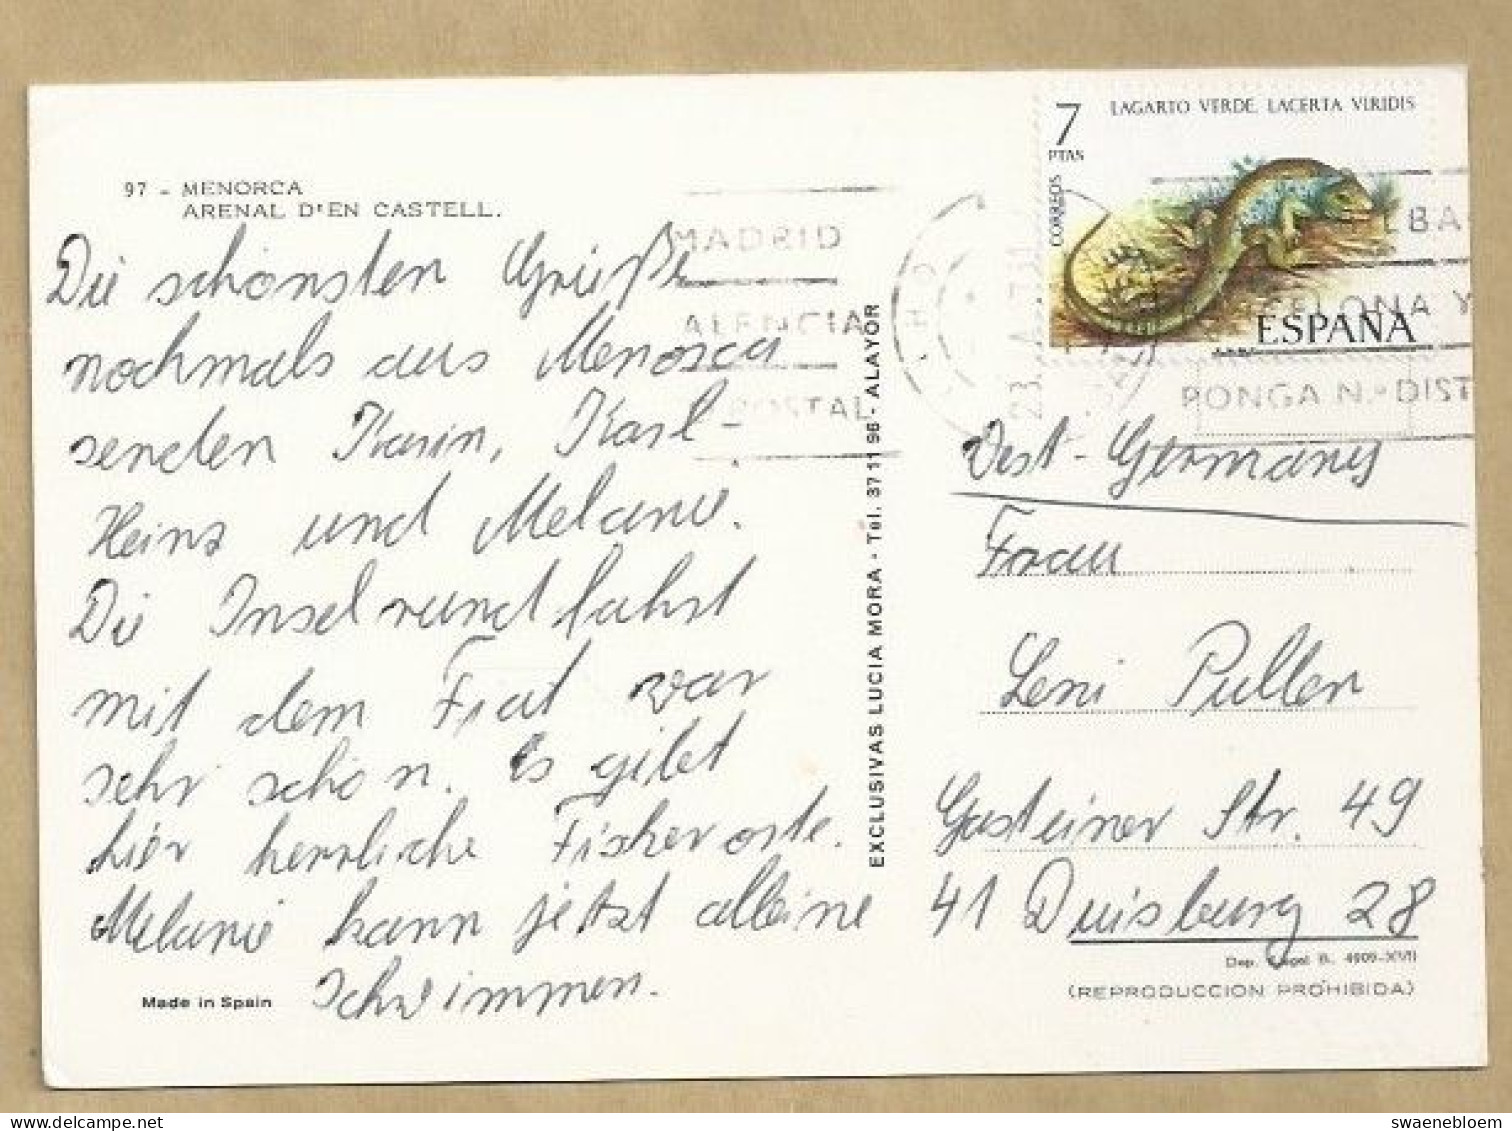 97 - MENORCA
ARENAL D'EN CASTELL.
Die schönsten Grüße
nochmals aus Menorca
senden Karin, Karl-
Heinz und Melanie.
Die Inselrundfahrt
mit dem Fiat war
sehr schön. Es gibt
hier herrliche Fischerorte.
Melanie kann jetzt alleine
schwimmen.
Made in Spain
EXCLUSIVAS LUCIA MORA - Tel. 37 11 96 - ALAYOR
MADRID
ALENCIA
POSTAL
7
PTAS
LAGARTO VERDE. LACERTA VIRIDIS
CORREOS
ESPAÑA
LBA
CELONA Y
PONGA N.º DIST
West-Germany
Frau
Leni Puller
Gasteiner Str. 49
41 Duisburg 28
Dep. Legal B. 4909-XVII
(REPRODUCCION PROHIBIDA)
swaenebloem